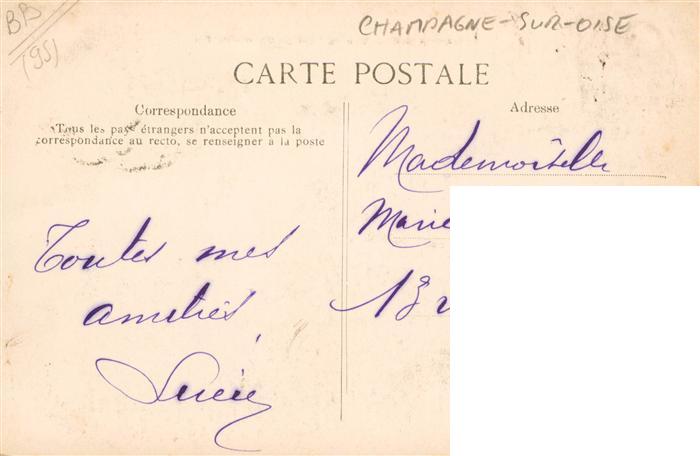 BB
(95)
CHAMPAGNE-SUR-OISE
CARTE POSTALE
Correspondance
Tous les pays étrangers n'acceptent pas la
correspondance au recto, se renseigner à la poste
Toutes mes
amitiés,
Adresse
Mademoiselle
Marie